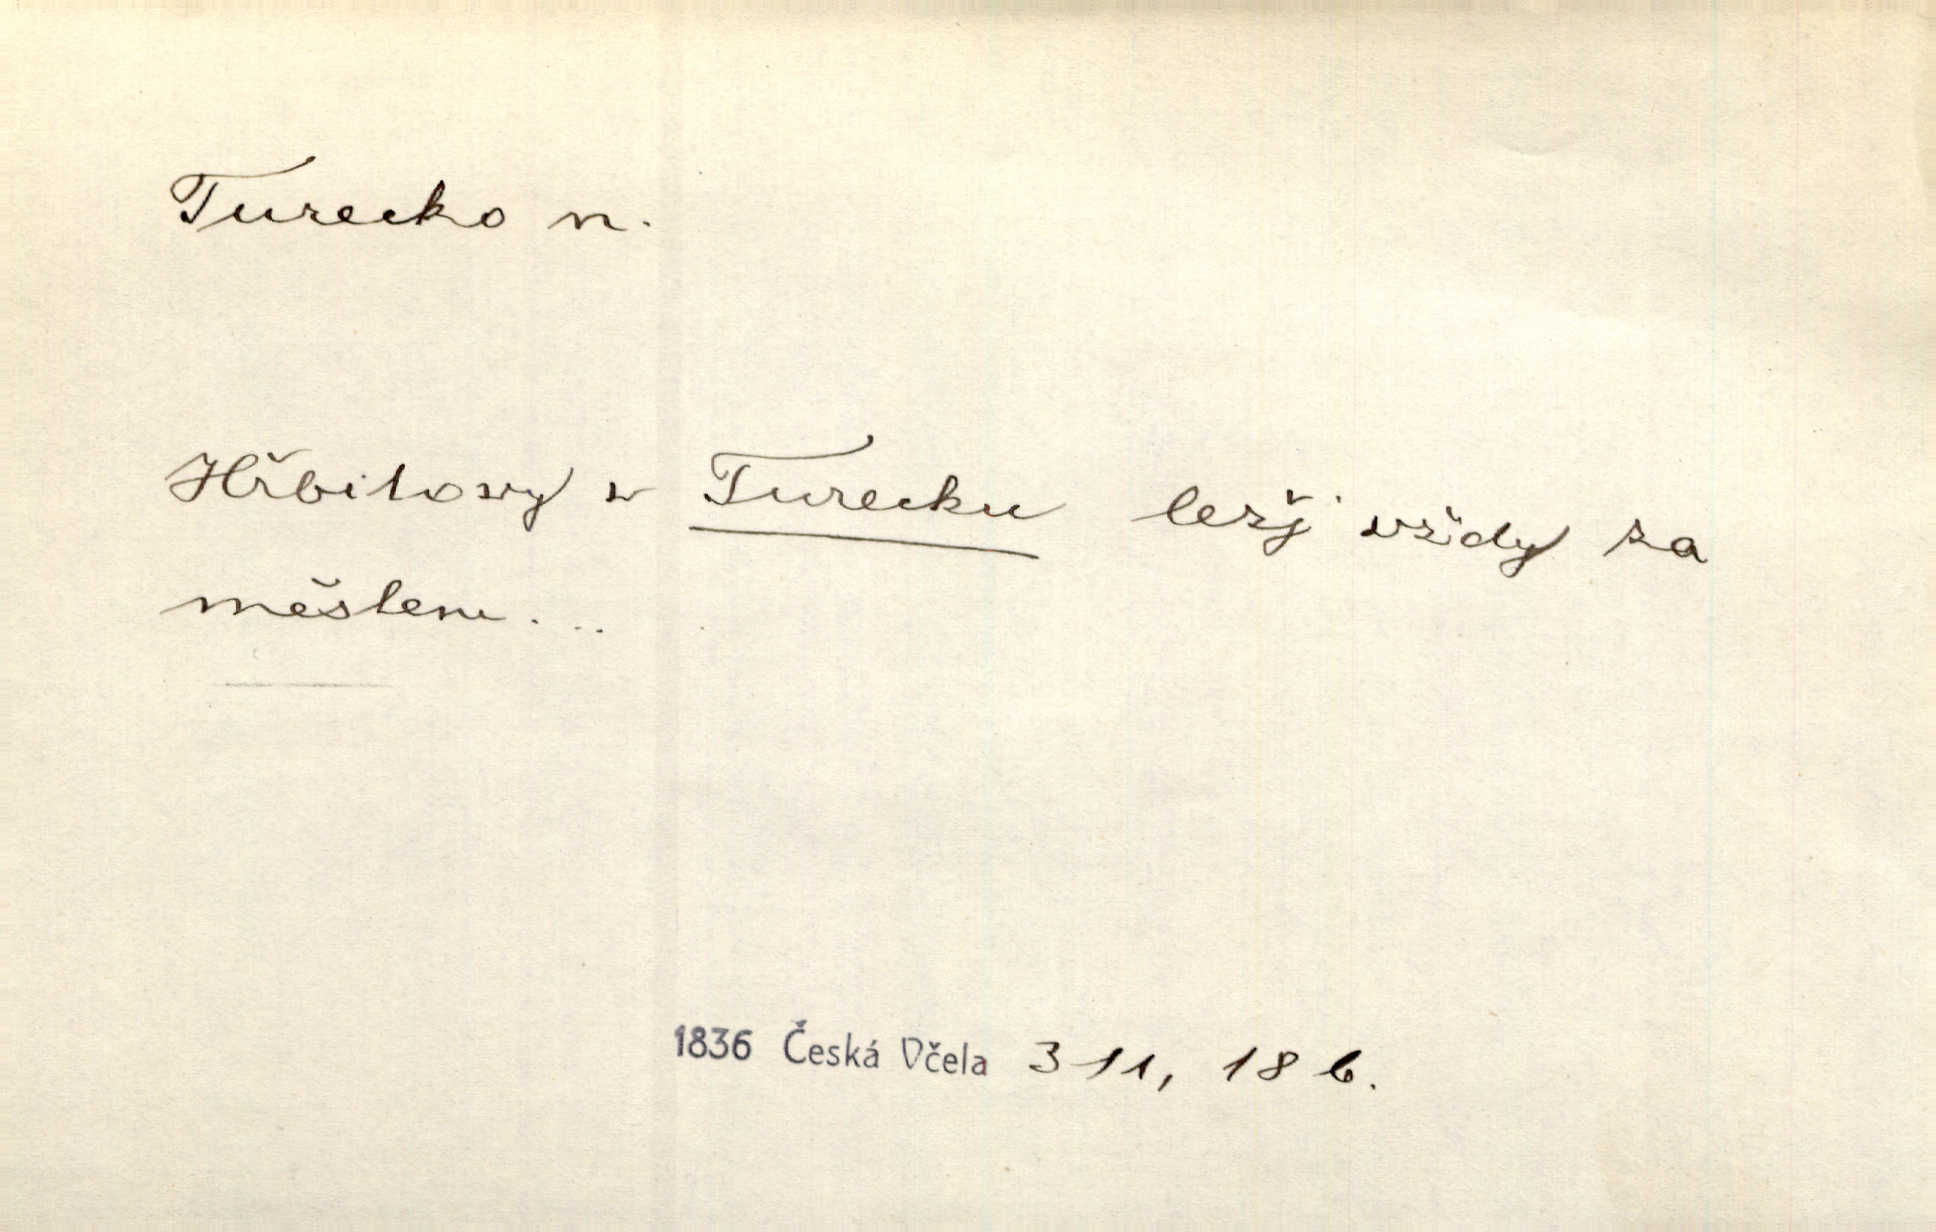 Turecko n.
Hřbitowy w Turecku ležj wždy za
městem...
1836 Česká Včela 311, 18 b.